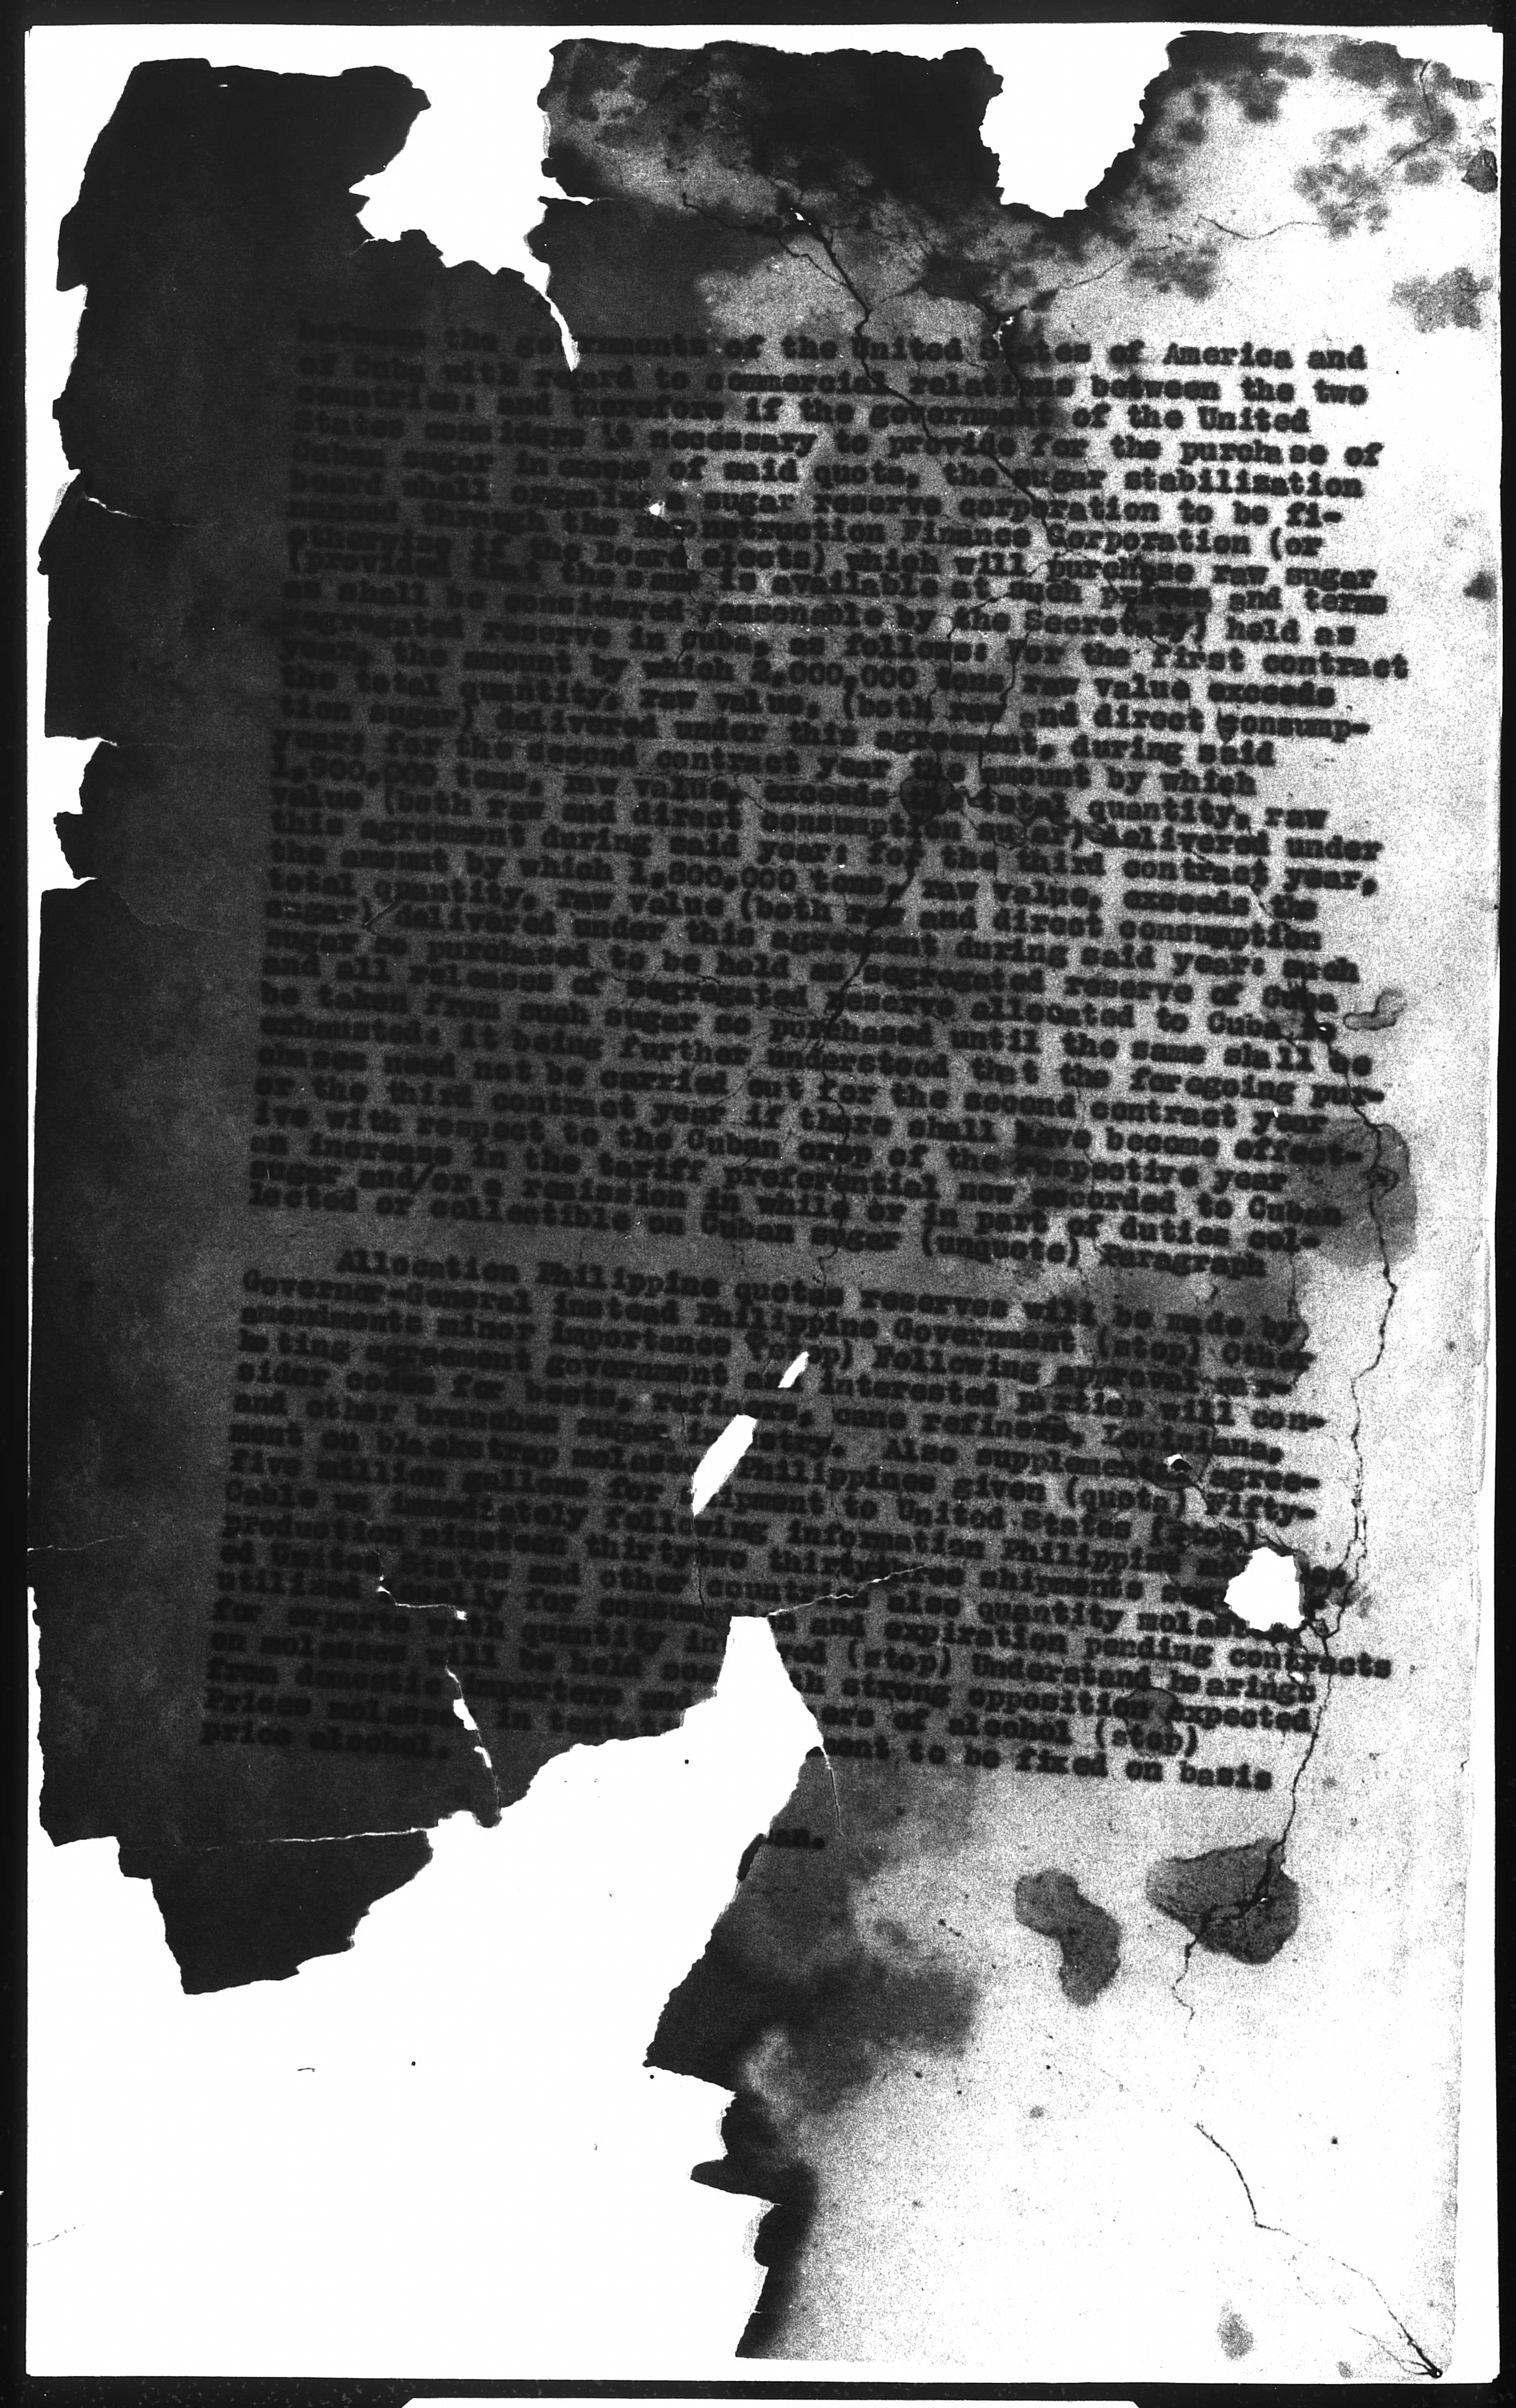 between the governments of the United States of America and
of Cuba with regard to commercial relations between the two
countries: and therefore if the government of the United
States considers it necessary to provide for the purchase of
Cuban sugar in excess of said quota, the sugar stabilization
board shall organize a sugar reserve corporation to be fi-
nanced through the Reconstruction Finance Corporation (or
otherwise if the Board elects) which will purchase raw sugar
(provided that the same is available at such prices and terms
as shall be considered reasonable by the Secretary) held as
segregated reserve in Cuba, as follows: For the first contract
year, the amount by which 2,000,000 tons raw value exceeds
the total quantity, raw value, (both raw and direct consump-
tion sugar) delivered under this agreement, during said
year: for the second contract year the amount by which
1,900,000 tons, raw value, exceeds the total quantity, raw
value (both raw and direct consumption sugar) delivered under
this agreement during said year: for the third contract year,
the amount by which 1,800,000 tons, raw value, exceeds the
total quantity, raw value (both raw and direct consumption
sugar) delivered under this agreement during said year: such
sugar so purchased to be held as segregated reserve of Cuba
and all releases of segregated reserve allocated to Cuba to
be taken from such sugar so purchased until the same shall be
exhausted: it being further understood that the foregoing pur-
chases need not be carried out for the second contract year
or the third contract year if there shall have become effect-
ive with respect to the Cuban crop of the respective year
an increase in the tariff preferential now accorded to Cuban
sugar and/or a remission in while or in part of duties col-
lected or collectible on Cuban sugar (unquote) Paragraph
Allocation Philippine quotas reserves will be made by
Governor-General instead Philippine Government (stop) Other
amendments minor importance (stop) Following approval mar-
keting agreement government and interested parties will con-
sider codes for beets, refiners, cane refiners, Louisiana,
and other branches sugar industry. Also supplemental agree-
ment on blackstrap molasses Philippines given (quota) Fifty-
five million gallons for shipment to United States (stop)
Cable us immediately following information Philippine
production nineteen thirtytwo thirtythree shipments
ed United States and other countries also quantity
utilized locally for and expiration pending contracts
for exports with quantity (stop) Understand hearings
on molasses will be held strong opposition expected
from domestic importers and ers of alcohol (stop)
Prices molasses in ment to be fixed on basis
price alcohol.